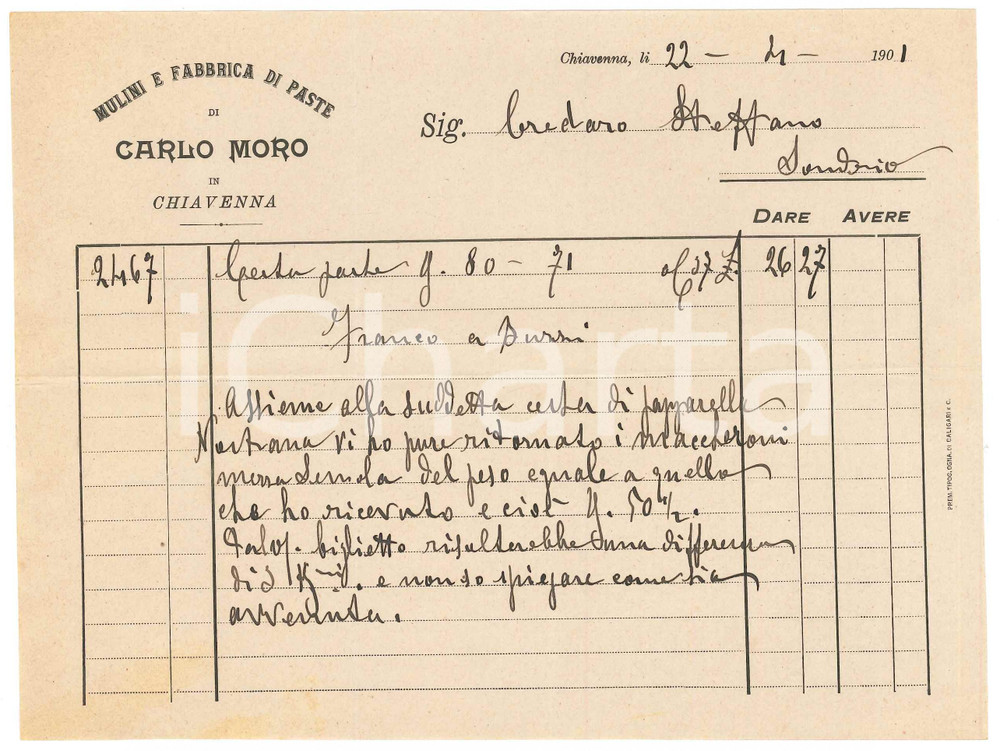 MULINI E FABBRICA DI PASTE
DI
CARLO MORO
IN
CHIAVENNA
Chiavenna, li 22 - 4 - 1901
Sig. Credaro Steffano
Sondrio
DARE AVERE
2467 Cesta paste 80 - 71 37 26 27
Franco a
Assieme alla suddetta cesta di papparelle
Nostrana vi ho pure ritornato i maccheroni
mezza Semola del peso eguale a quello
che ho ricevuto e cioè 50 ½.
biglietto risulterebbe una differenza
di e non so spiegare come sia
avvenuta.
PREM. TIPOLOGRA. DI CALIGARI e C.
iCharta